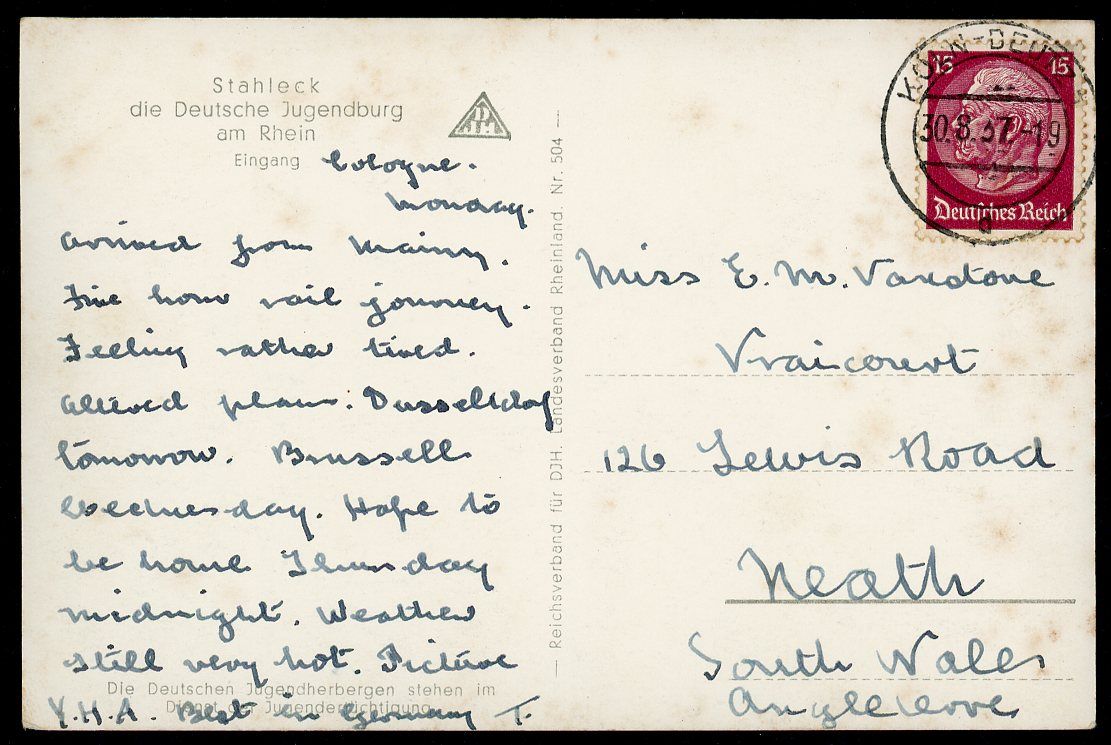 Stahleck
die Deutsche Jugendburg
am Rhein
Eingang
Cologne.
Monday.
Arrived from Mainz.
Five hour rail journey.
Feeling rather tired.
Altered plan. Dusseldorf
tomorrow. Brussells
Wednesday. Hope to
be home Thursday
midnight. Weather
still very hot. Picture
Y.H.A. Best in Germany T.
Die Deutschen Jugendherbergen stehen im
Dienst der Jugendertüchtigung
— Reichsverband für DJH. Landesverband Rheinland. Nr. 504 —
15 15
Deutsches Reich
KÖLN-DEUTZ
30.8.37.-19
a
Miss E. M. Vardone
Vraicourt
126 Lewis Road
Neath
South Wales
Angleterre